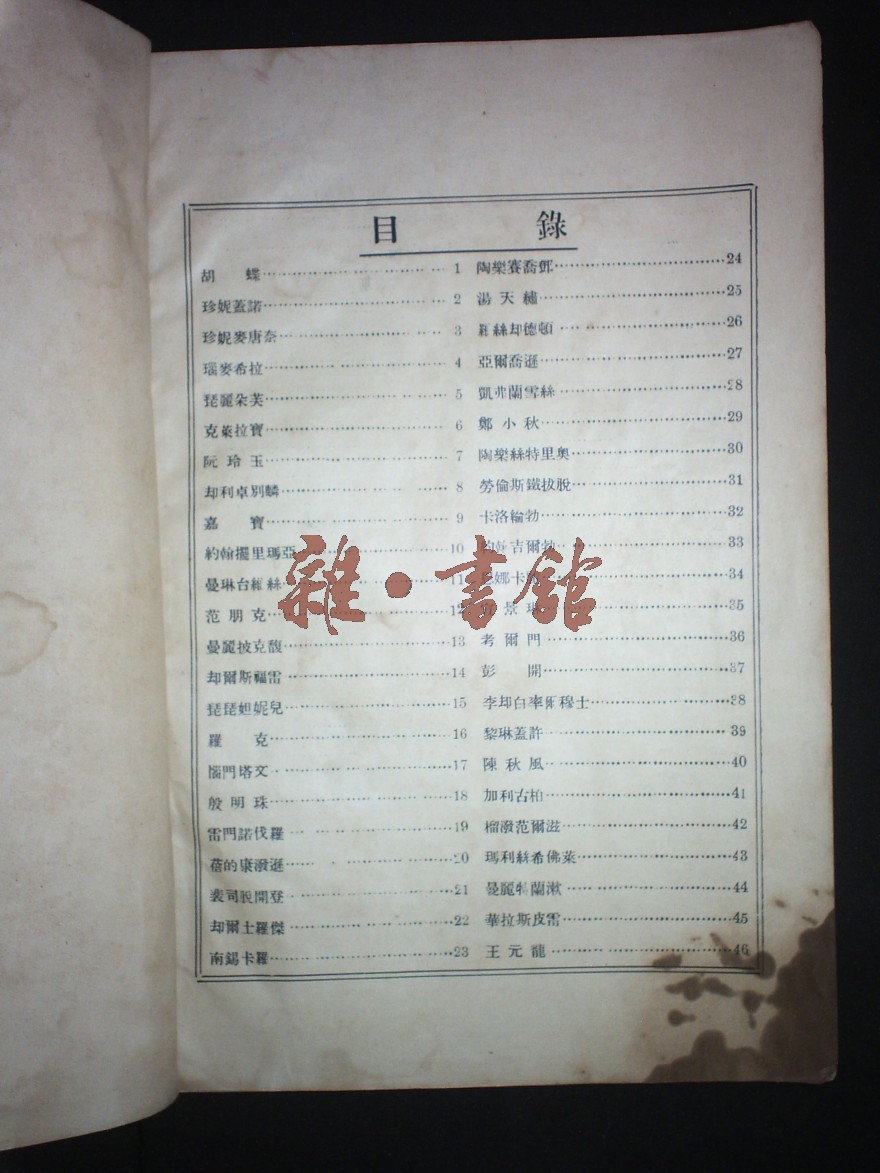 目 錄
胡 蝶 1
珍妮蓋諾 2
珍妮麥唐奈 3
瑙麥希拉 4
琵麗朵芙 5
克萊拉寶 6
阮玲玉 7
却利卓別麟 8
嘉 寶 9
約翰擺里瑪亞 10
曼琳台維絲 11
范朋克 12
曼麗披克馥 13
却爾斯福雷 14
琵琵妲妮兒 15
羅 克 16
惱門塔文 17
殷明珠 18
雷門諾伐羅 19
蓓的康潑遜 20
裴司脫開登 21
却爾士羅傑 22
南錫卡羅 23
陶樂賽喬鄧 24
湯天繡 25
絲却德頓 26
亞爾喬遜 27
凱弗蘭雪絲 28
鄭小秋 29
陶樂絲特里奧 30
勞倫斯鐵拔脫 31
卡洛綸勃 32
約翰吉爾勃 33
娜卡 34
景 35
考爾門 36
彭 開 37
李却白率爾穆士 38
黎琳蓋許 39
陳秋風 40
加利古柏 41
榴潑范爾滋 42
瑪利絲希佛萊 43
曼麗特蘭漱 44
華拉斯皮雷 45
王元龍 46
雜·書館